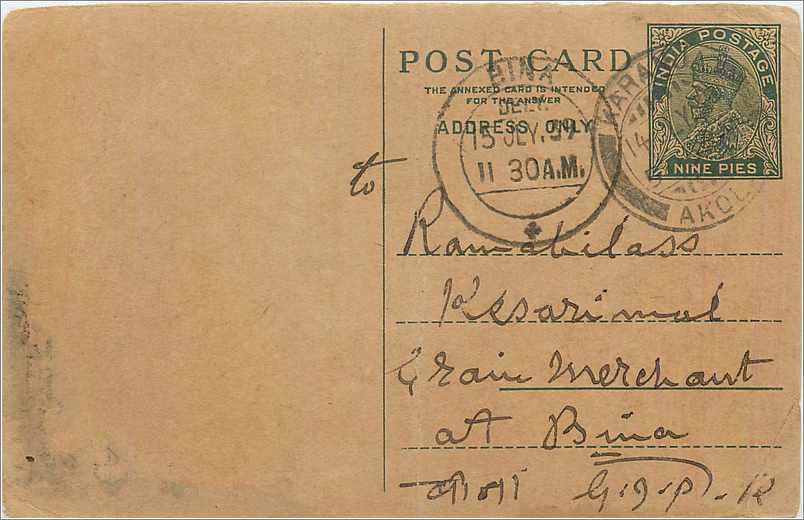 POST CARD
THE ANNEXED CARD IS INTENDED
FOR THE ANSWER
ADDRESS ONLY
INDIA POSTAGE
NINE PIES
BINA
15 JLY. 39
11 30A.M.
14
AKOLA
to
Rambilass
Kesarimal
Grain Merchant
at Bina
बीना G.I.P.R